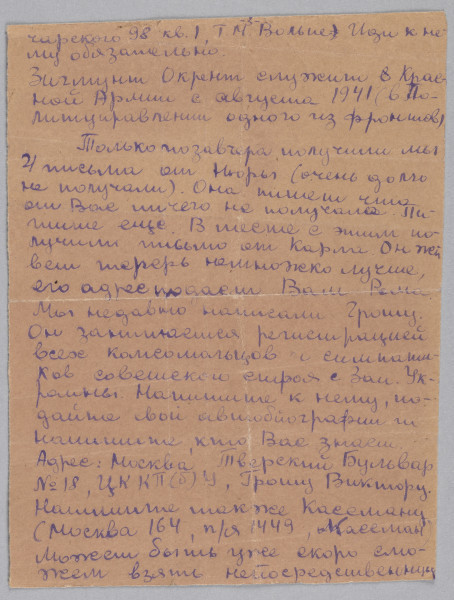 чарского 98 кв. 1, Т Вольпе). Иди к не-
му обязательно.
Зигмунт Окрент служит в Крас-
ной Армии с августа 1941 (в По-
литуправлении одного из фронтов)
Только позавчера получили мы
2 письма от Нюры (очень долго
не получали). Она пишет что
от Вас ничего не получала. Пи-
шите еще. Вместе с этим по-
лучили письмо от Карла. Он жи-
вет теперь немножко лучше,
его адрес подает Вам Рома.
Мы недавно написали Грошу.
Он занимается регистрацией
всех комсомольцов и симпати-
ков советского строя с Зап. Ук-
раины. Напишите к нему, по-
дайте свой автобиографии и
напишите, кто Вас знает.
Адрес: Москва Тверский Бульвар
№ 18, ЦК КП(б)У, Грошу Виктору.
Напишите также Кассману
(Москва 164, п/я 1449, Кассман)
Может быть уже скоро смо-
жем взять непосредственную